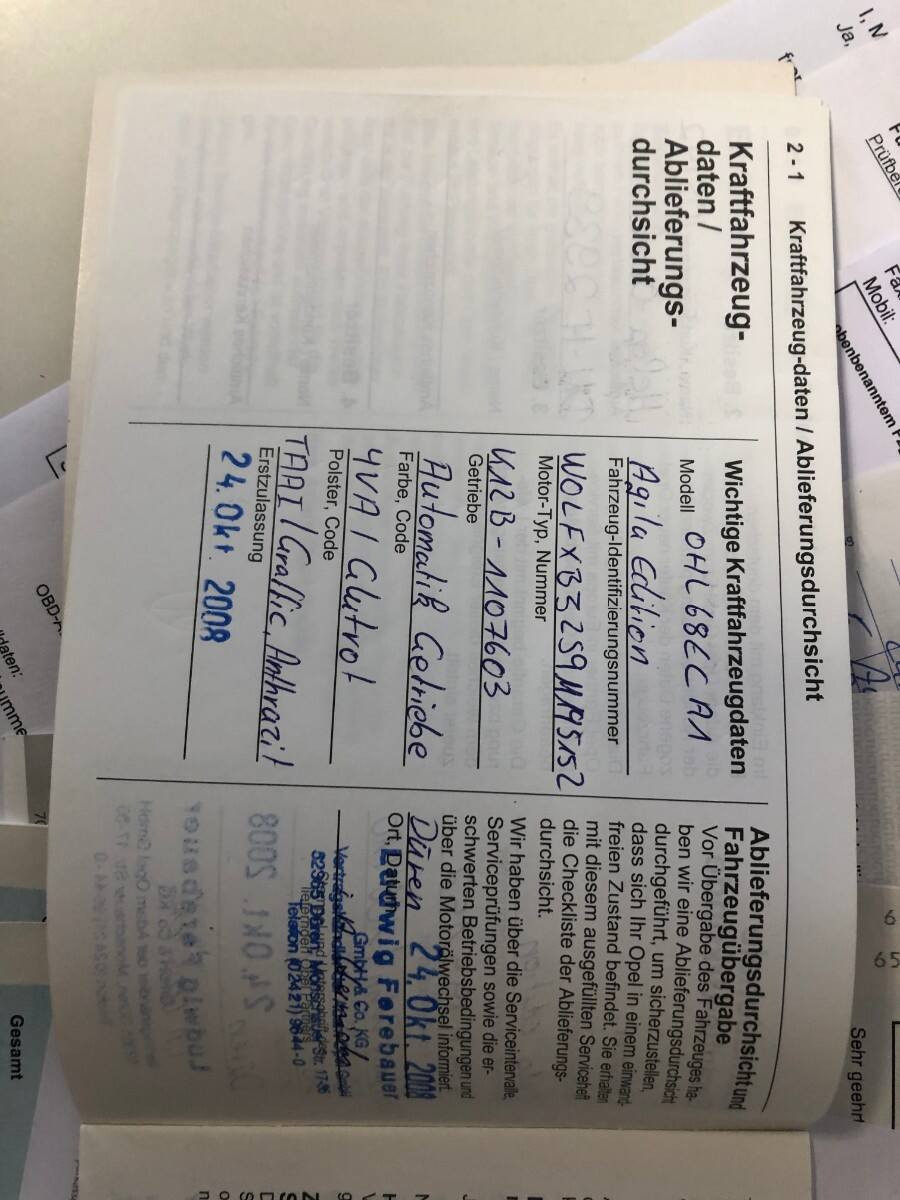 2 - 1 Kraftfahrzeug-daten / Ablieferungsdurchsicht
Kraftfahrzeug-
daten /
Ablieferungs-
durchsicht
Wichtige Kraftfahrzeugdaten
Modell OHL68CCA1
Agila Edition
Fahrzeug-Identifizierungsnummer
W0LFXB3259M195152
Motor-Typ, Nummer
K12B - 1107603
Getriebe
Automatik Getriebe
Farbe, Code
4VA / Glutrot
Polster, Code
TAAI / Graffic, Anthrazit
Erstzulassung
24. Okt. 2008
Ablieferungsdurchsicht und
Fahrzeugübergabe
Vor Übergabe des Fahrzeuges ha-
ben wir eine Ablieferungsdurchsicht
durchgeführt, um sicherzustellen,
dass sich Ihr Opel in einem einwand-
freien Zustand befindet. Sie erhalten
mit diesem ausgefüllten Serviceheft
die Checkliste der Ablieferungs-
durchsicht.
Wir haben über die Serviceintervalle,
Serviceprüfungen sowie die er-
schwerten Betriebsbedingungen und
über die Motorölwechsel informiert.
Düren 24. Okt. 2008
Ort, Datum
Ludwig Ferebauer
GmbH & Co. KG
52353 Düren
Telefon (02421) 9644-0
I, N
Ja,
Prüfber
Fax
Mobil:
obenbenanntem
OBD-
daten:
Sehr geehrt
6
65
Gesamt